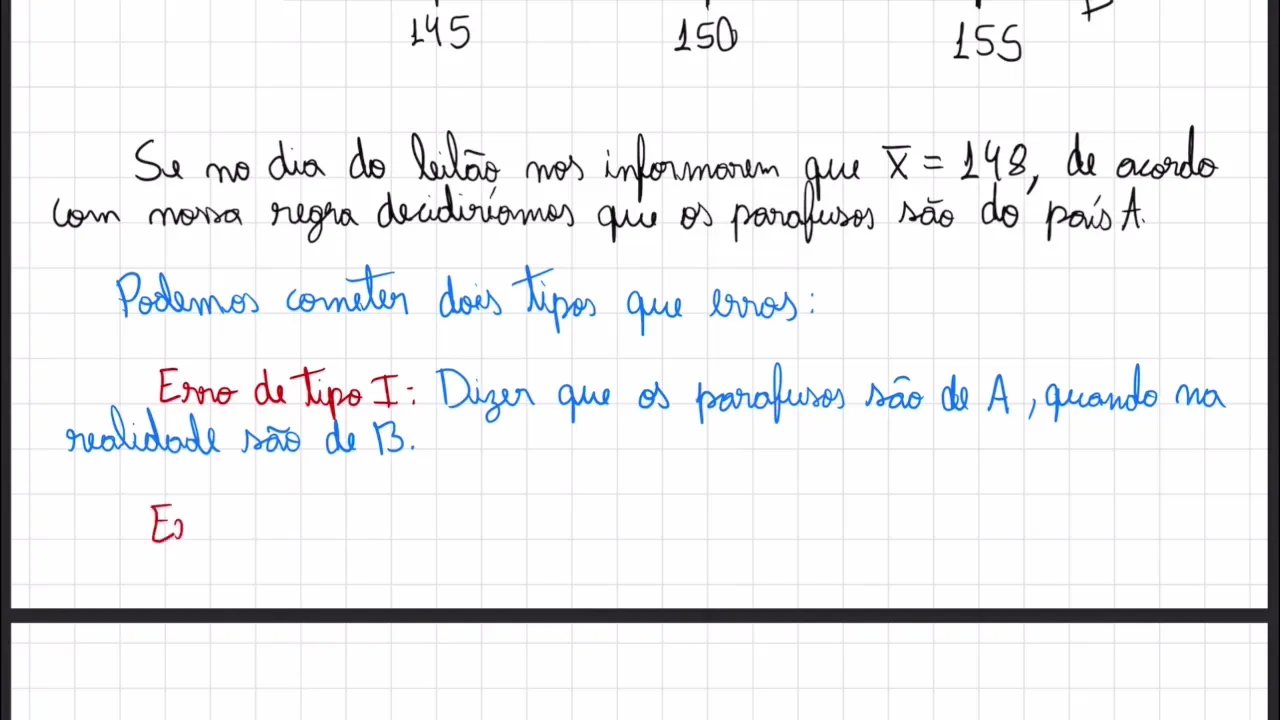 145 150 155
Se no dia do leilão nos informarem que x̄ = 148, de acordo
com nossa regra decidiríamos que os parafusos são do país A.
Podemos cometer dois tipos que erros:
Erro de tipo I: Dizer que os parafusos são de A, quando na
realidade são de B.